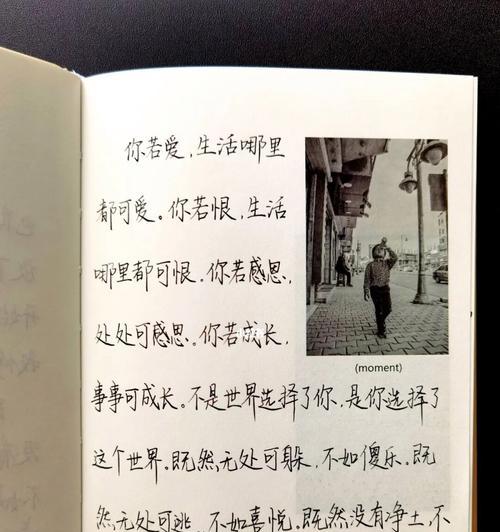 你若爱,生活哪里
都可爱。你若恨,生活
哪里都可恨。你若感恩,
处处可感恩。你若成长,
事事可成长。不是世界选择了你,是你选择了
这个世界。既然无处可躲,不如傻乐。既
然无处可逃,不如喜悦。既然没有净土,不
(moment)